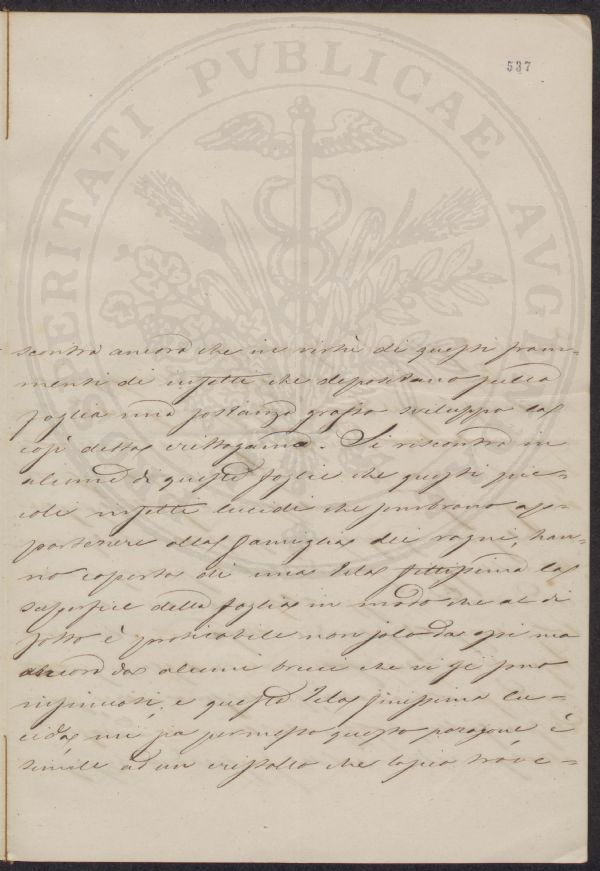 537
PROSPERITATI PVBLICAE AVGENDAE
scontra ancora che in virtù di questi fram-
menti di insetti che depositano sulla
foglia una sostanza grassa sviluppa la
così detta crittogama. Si riscontra in
alcune di queste foglie che questi pic-
coli insetti lucidi che sembrano ap-
partenere alla famiglia dei ragni, han-
no coperta di una tela fittissima la
superficie della foglia in modo che al di
sotto è praticabile non solo da essi ma
ancora da alcuni bruci che vi si sono
insinuati, e questa tela finissima lu-
cida mi sia permesso questo paragone è
simile ad un cristallo che lascia trave-